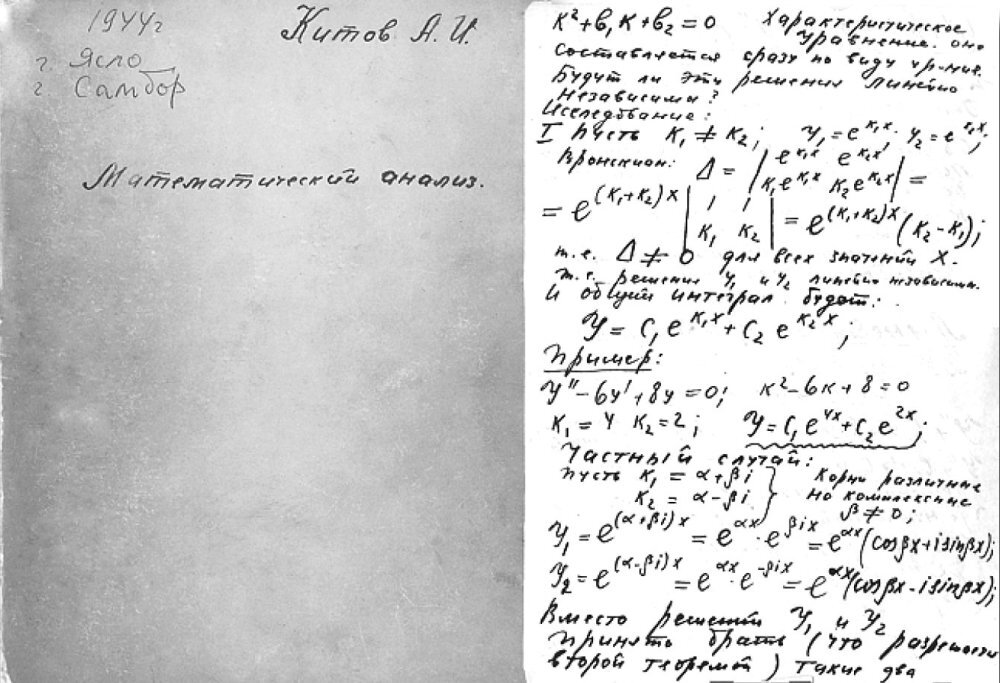 1944г
г. Ясло
г. Самбор
Китов А. И.
Математический анализ.
к²+в₁к+в₂=0 Характеристическое
уравнение. оно
составляется сразу по виду ур-ния.
Будут ли эти решения линейно
независимы?
Исследование:
I Пусть к₁ ≠ к₂; y₁=e^{к₁x}; y₂=e^{к₂x};
Вронскиан: Δ = | e^{к₁x} e^{к₂x} |
| к₁e^{к₁x} к₂e^{к₂x} | =
= e^{(к₁+к₂)x} | 1 1 |
| к₁ к₂ | = e^{(к₁+к₂)x}(к₂-к₁);
т.е. Δ ≠ 0 для всех значений X.
т.е. решения y₁ и y₂ линейно независим.
И общий интеграл будет:
y = C₁e^{к₁x}+C₂e^{к₂x};
Пример:
y″-6y′+8y=0; к²-6к+8=0
к₁=4 к₂=2; y=C₁e^{4x}+C₂e^{2x};
Частный случай:
пусть к₁ = α+βi } Корни различные
к₂ = α-βi } но комплексные
β≠0;
y₁=e^{(α+βi)x} = e^{αx}·e^{βix} = e^{αx}(cosβx+isinβx);
y₂=e^{(α-βi)x} = e^{αx}·e^{-βix} = e^{αx}(cosβx-isinβx);
Вместо решений y₁ и y₂
принято брать (что разрешается
второй теоремой) такие два